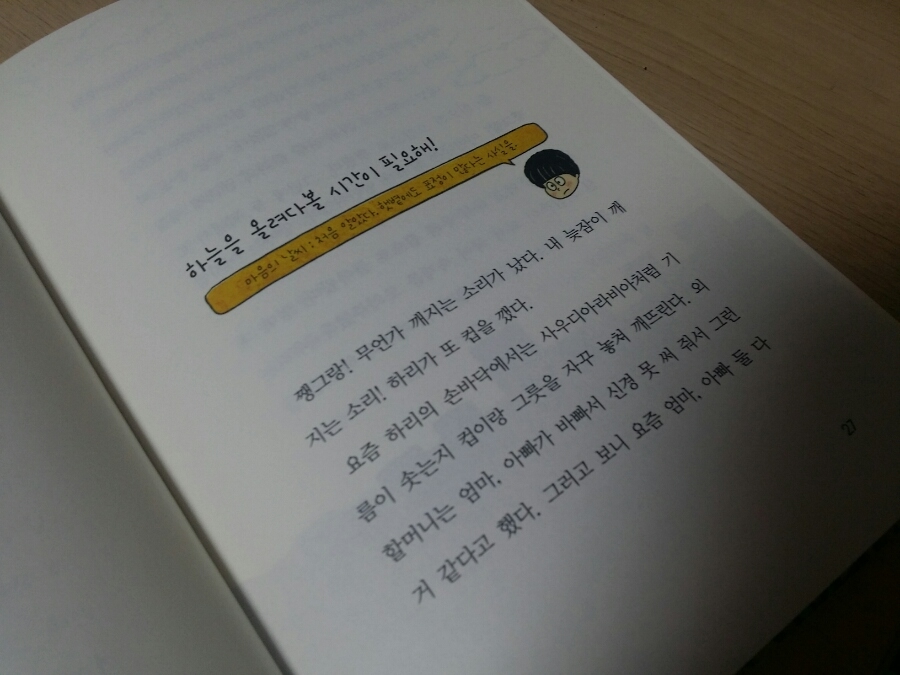 하늘을 올려다볼 시간이 필요해!
마음의 날씨 : 처음 알았다. 햇볕에도 표정이 많다는 사실을.
쨍그랑! 무언가 깨지는 소리가 났다. 내 늦잠이 깨
지는 소리! 하리가 또 컵을 깼다.
요즘 하리의 손바닥에서는 사우디아라비아처럼 기
름이 솟는지 컵이랑 그릇을 자꾸 놓쳐 깨뜨린다. 외
할머니는 엄마, 아빠가 바빠서 신경 못 써 줘서 그런
거 같다고 했다. 그러고 보니 요즘 엄마, 아빠 둘 다
27